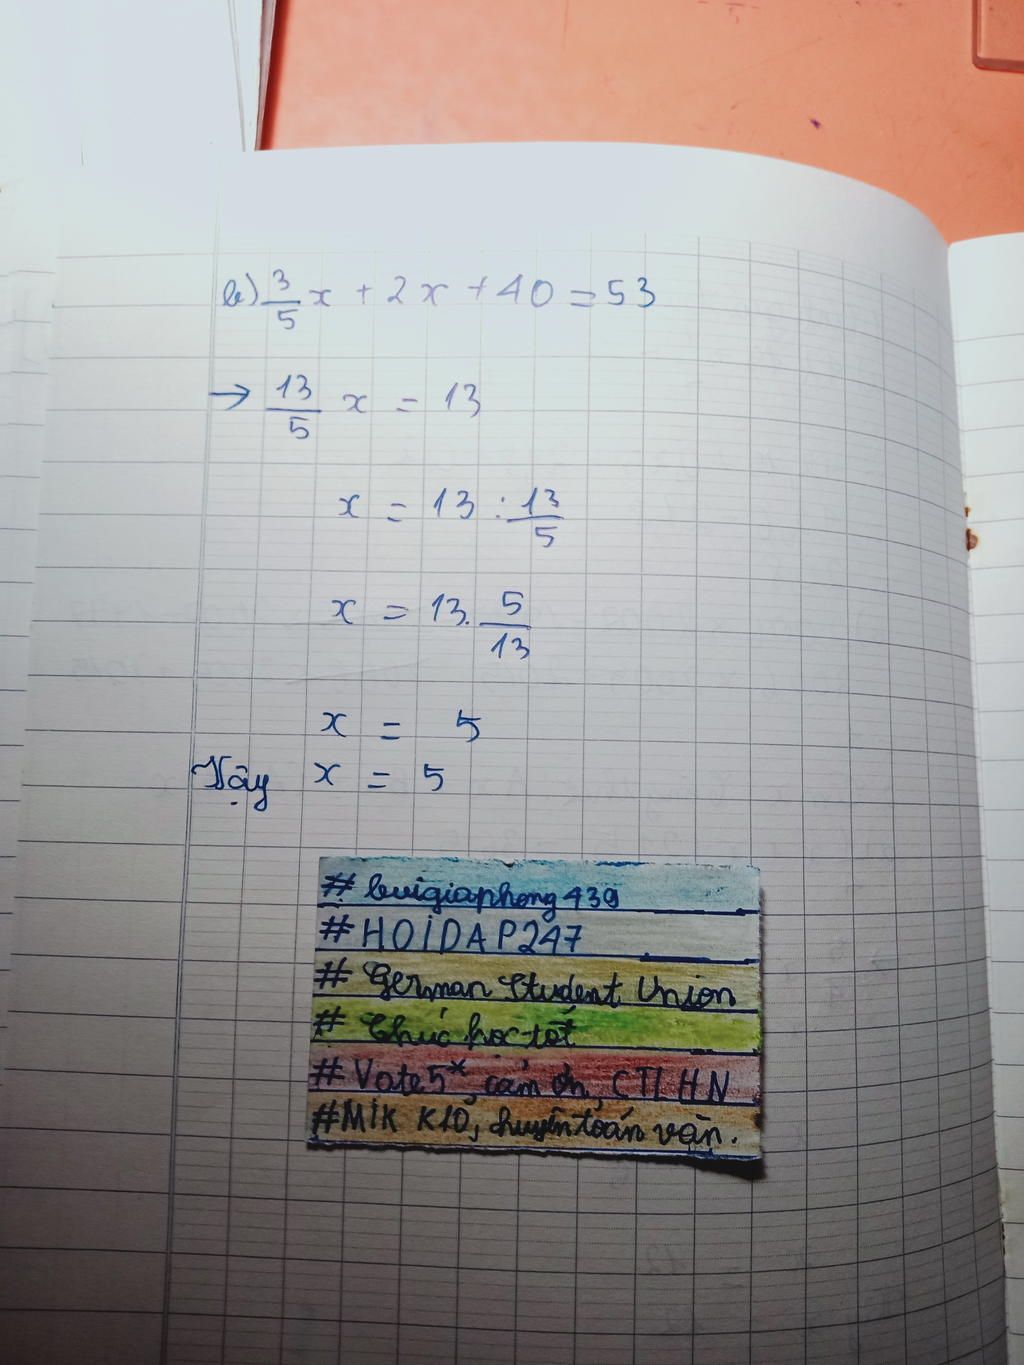 b) 3/5 x + 2x + 40 = 53
→ 13/5 x = 13
x = 13 : 13/5
x = 13. 5/13
x = 5
Vậy x = 5
# buigiaphong439
# HOIDAP247
# German Student Union
# Chúc học tốt
# Vote 5*, cảm ơn, CTLHN
#MIK K10, chuyên toán văn.